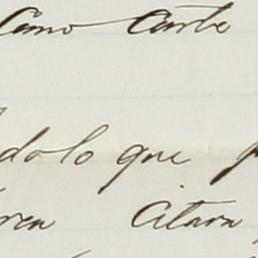 Como Carta
do lo que
rea Citara